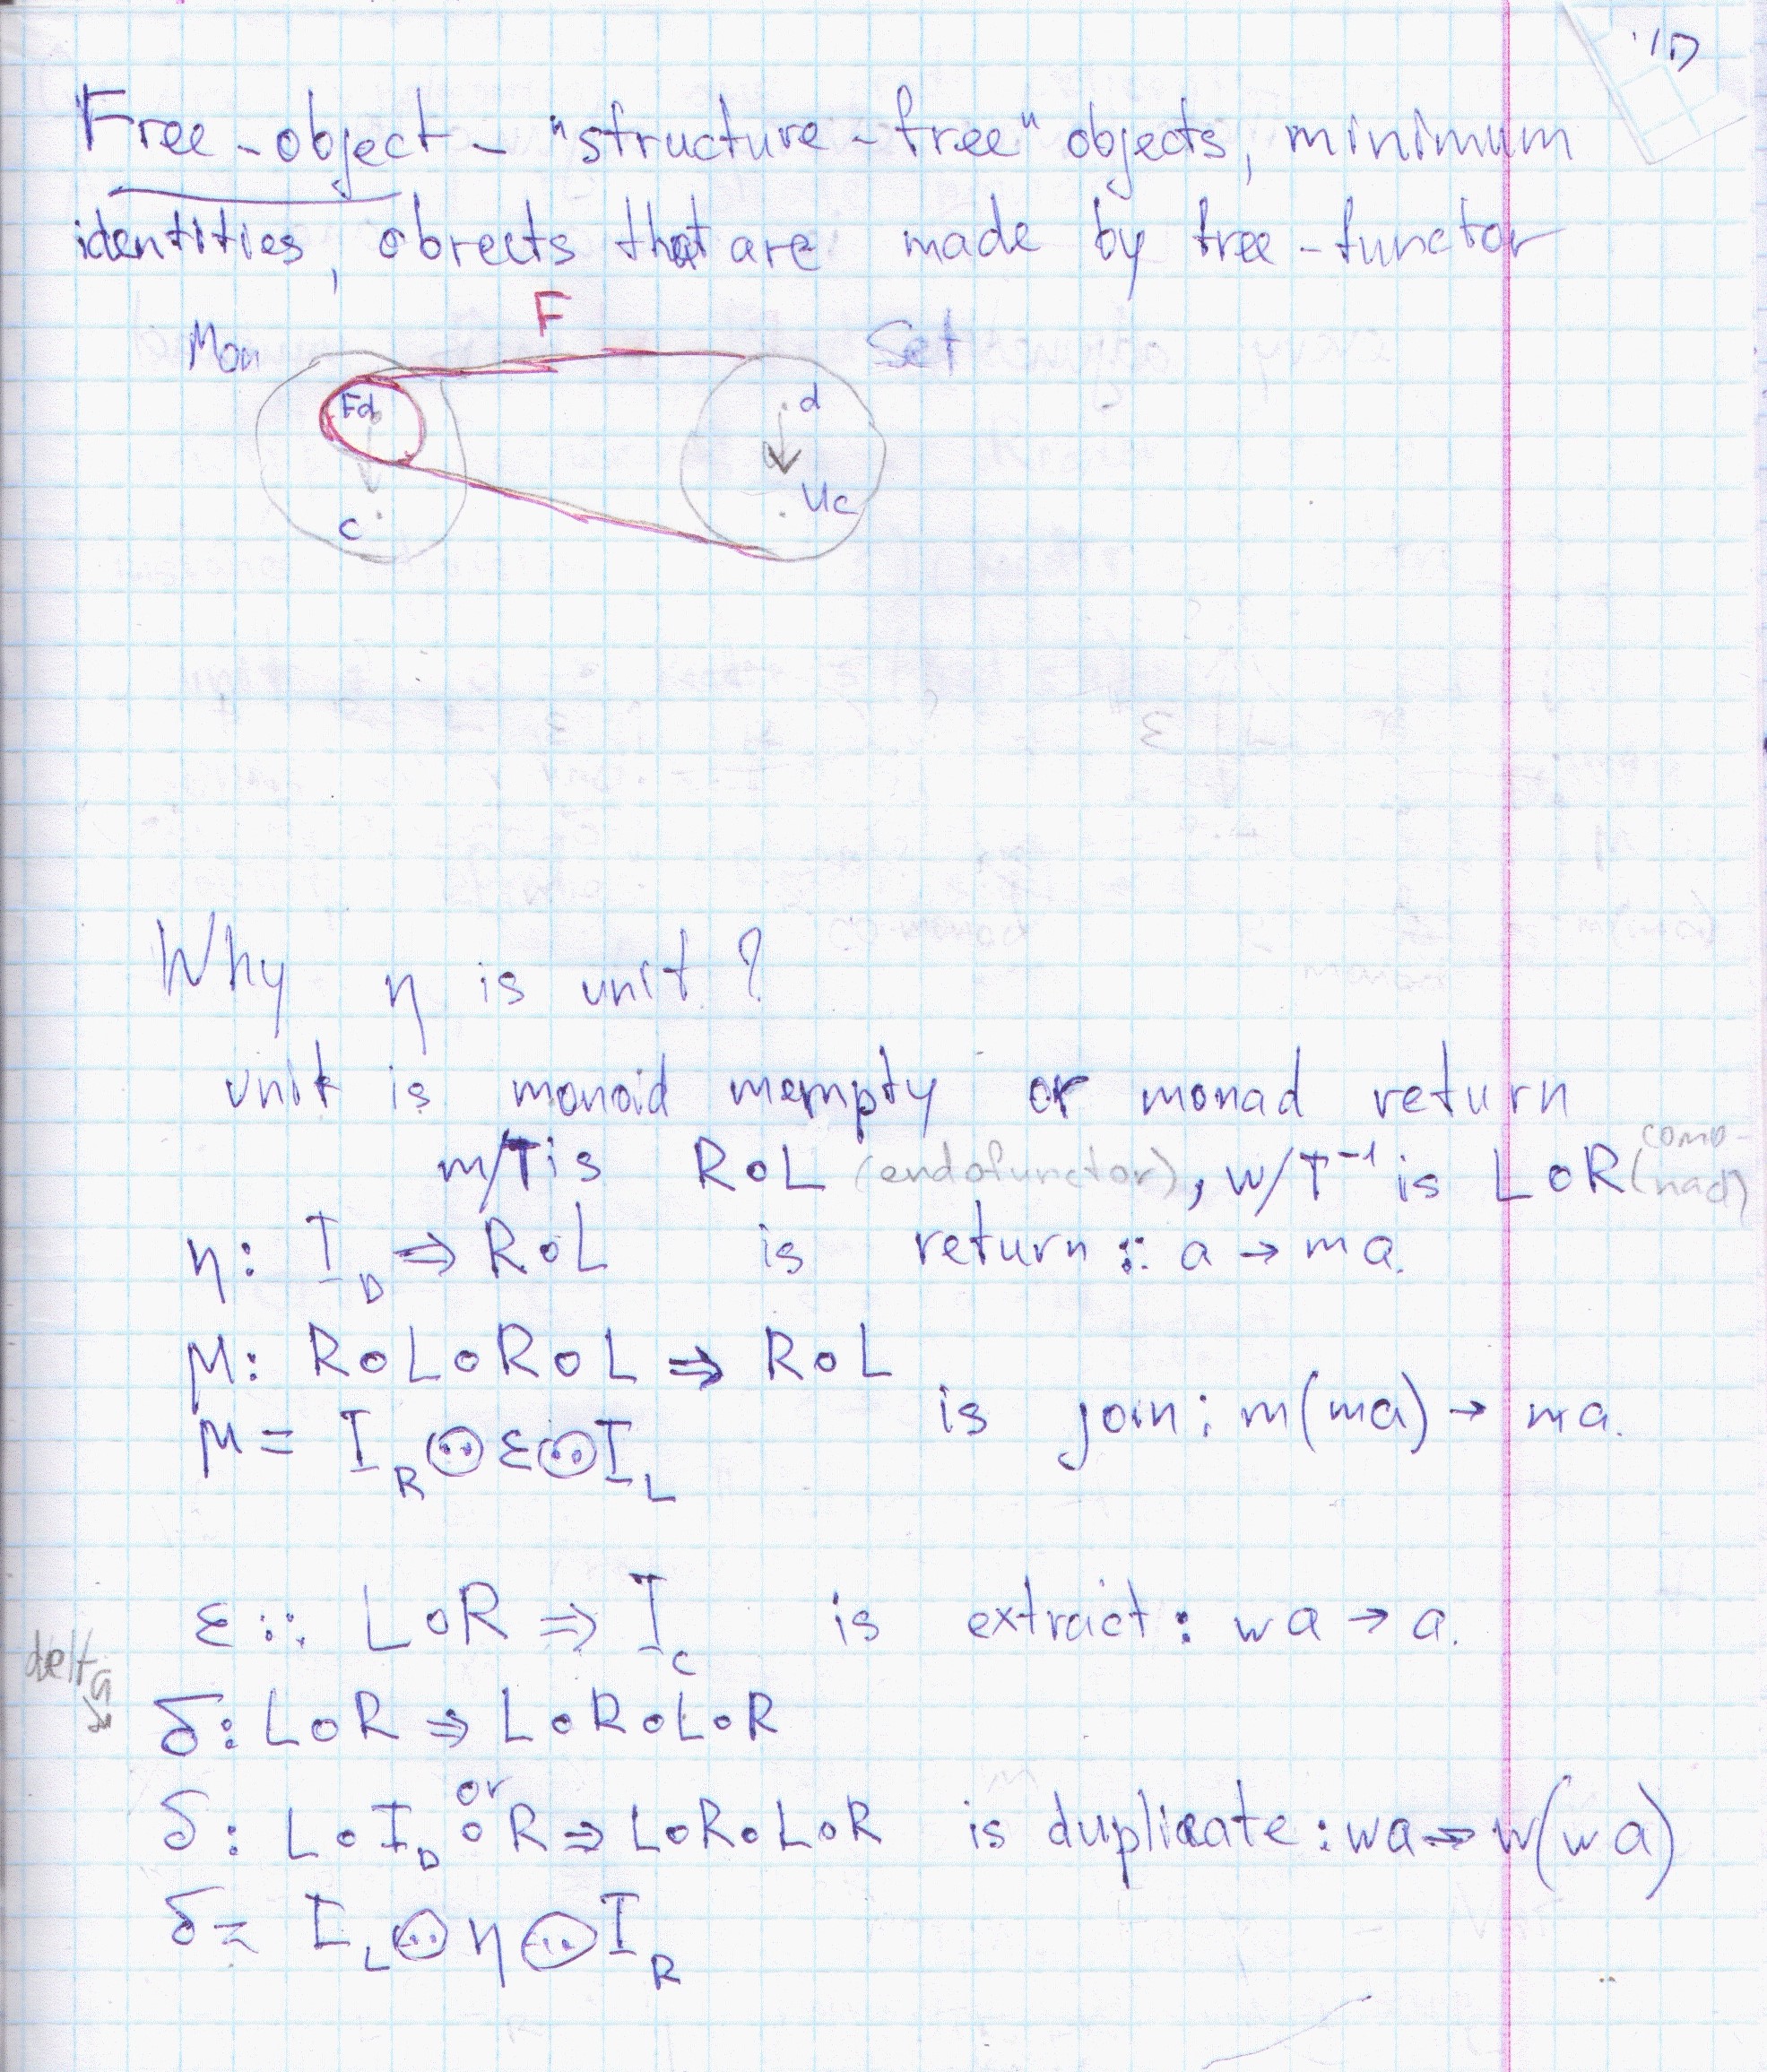 Free-object - "structure-free" objects, minimum
identities, obrects that are made by free-functor
Mon F Set
Fd d
c Uc
Why η is unit?
unit is monoid mempty or monad return
m/T is R∘L (endofunctor), w/T⁻¹ is L∘R (comonad)
η: I_D ⇒ R∘L is return :: a → m a.
μ: R∘L∘R∘L ⇒ R∘L
is join: m(ma) → ma.
μ = I_R ⊙ ε ⊙ I_L
ε :: L∘R ⇒ I_C is extract: wa → a.
delta
δ: L∘R ⇒ L∘R∘L∘R
or
δ: L∘I_D∘R ⇒ L∘R∘L∘R is duplicate: wa → w(wa)
δ = I_L ⊙ η ⊙ I_R